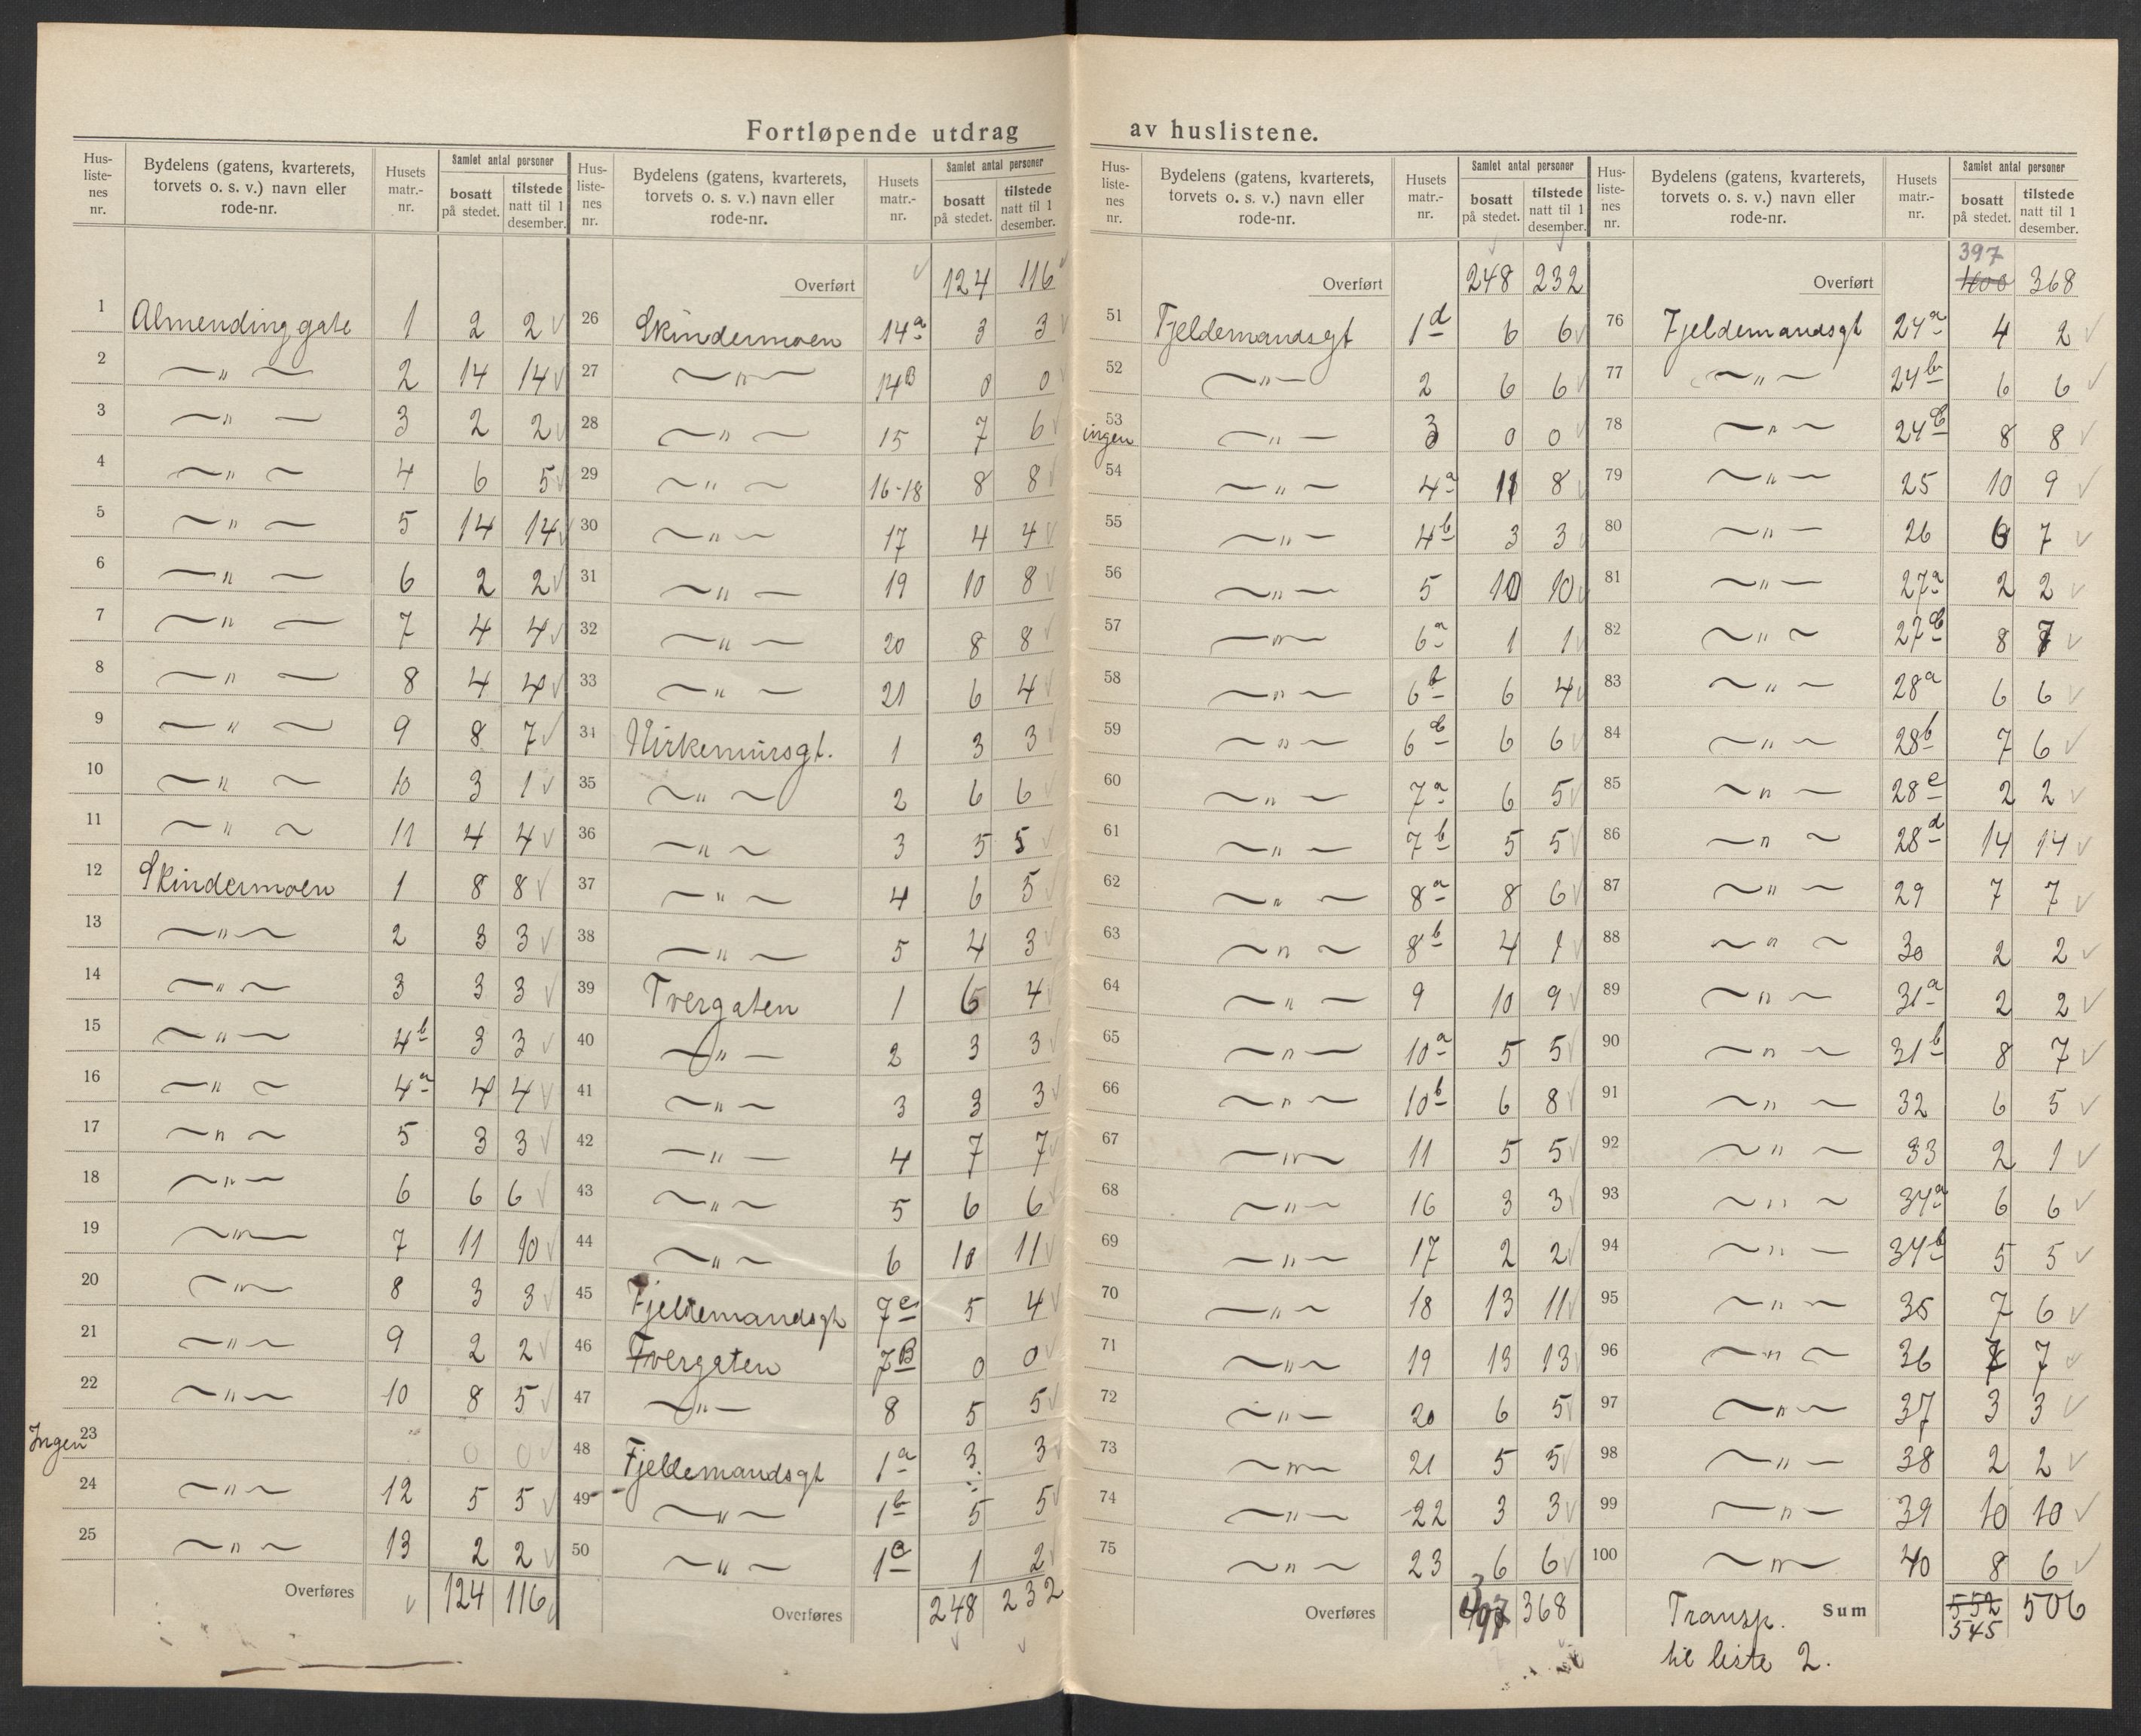 Fortløpende utdrag av huslistene.
Hus-listenes nr. | Bydelens (gatens, kvarterets, torvets o. s. v.) navn eller rode-nr. | Husets matr.-nr. | Samlet antal personer bosatt på stedet. | tilstede natt til 1 desember.
1 Almendinggate 1 2 2 ✓
2 —„— 2 14 14 ✓
3 —„— 3 2 2 ✓
4 —„— 4 6 5 ✓
5 —„— 5 14 14 ✓
6 —„— 6 2 2 ✓
7 —„— 7 4 4 ✓
8 —„— 8 4 4 ✓
9 —„— 9 8 7 ✓
10 —„— 10 3 1 ✓
11 —„— 11 4 4 ✓
12 Skindermoen 1 8 8 ✓
13 —„— 2 3 3 ✓
14 —„— 3 3 3 ✓
15 —„— 4b 3 3 ✓
16 —„— 4a 4 4 ✓
17 —„— 5 3 3 ✓
18 —„— 6 6 6 ✓
19 —„— 7 11 10 ✓
20 —„— 8 3 3 ✓
21 —„— 9 2 2 ✓
22 —„— 10 8 5 ✓
Ingen 23 0 0 ✓
24 —„— 12 5 5 ✓
25 —„— 13 2 2 ✓
Overføres ✓ 124 116 ✓
Hus-listenes nr. | Bydelens (gatens, kvarterets, torvets o. s. v.) navn eller rode-nr. | Husets matr.-nr. | Samlet antal personer bosatt på stedet. | tilstede natt til 1 desember.
Overført ✓ 124 116 ✓
26 Skindermoen 14a 3 3 ✓
27 —„— 14B 0 0 ✓
28 —„— 15 7 6 ✓
29 —„— 16-18 8 8 ✓
30 —„— 17 4 4 ✓
31 —„— 19 10 8 ✓
32 —„— 20 8 8 ✓
33 —„— 21 6 4 ✓
34 1 3 3 ✓
35 —„— 2 6 6 ✓
36 —„— 3 5 5 ✓
37 —„— 4 6 5 ✓
38 —„— 5 4 3 ✓
39 Tvergaten 1 6 4 ✓
40 —„— 2 3 3 ✓
41 —„— 3 3 3 ✓
42 —„— 4 7 7 ✓
43 —„— 5 6 6 ✓
44 —„— 6 10 11 ✓
45 Fjeldemandsgt 7c 5 4 ✓
46 Tvergaten 7B 0 0 ✓
47 —„— 8 5 5 ✓
48 Fjeldemandsgt 1a 3 3 ✓
49 —„— 1b 5 5 ✓
50 —„— 1c 1 2 ✓
Overføres 248 232
Hus-listenes nr. | Bydelens (gatens, kvarterets, torvets o. s. v.) navn eller rode-nr. | Husets matr.-nr. | Samlet antal personer bosatt på stedet. | tilstede natt til 1 desember.
Overført 248 232
51 Fjeldemandsgt 1d 6 6 ✓
52 —„— 2 6 6 ✓
53 ingen —„— 3 0 0 ✓
54 —„— 4a 11 8 ✓
55 —„— 4b 3 3 ✓
56 —„— 5 10 10 ✓
57 —„— 6a 1 1 ✓
58 —„— 6b 6 4 ✓
59 —„— 6c 6 6 ✓
60 —„— 7a 6 5 ✓
61 —„— 7b 5 5 ✓
62 —„— 8a 8 6 ✓
63 —„— 8b 4 1 ✓
64 —„— 9 10 9 ✓
65 —„— 10a 5 5 ✓
66 —„— 10b 6 8 ✓
67 —„— 11 5 5 ✓
68 —„— 16 3 3 ✓
69 —„— 17 2 2 ✓
70 —„— 18 13 11 ✓
71 —„— 19 13 13 ✓
72 —„— 20 6 5 ✓
73 —„— 21 5 5 ✓
74 —„— 22 3 3 ✓
75 —„— 23 6 6 ✓
Overføres 397 368
Hus-listenes nr. | Bydelens (gatens, kvarterets, torvets o. s. v.) navn eller rode-nr. | Husets matr.-nr. | Samlet antal personer bosatt på stedet. | tilstede natt til 1 desember.
397
Overført 400 368
76 Fjeldemandsgt 24a 4 2 ✓
77 —„— 24b 6 6 ✓
78 —„— 24c 8 8 ✓
79 —„— 25 10 9 ✓
80 —„— 26 6 7 ✓
81 —„— 27a 2 2 ✓
82 —„— 27b 8 7 ✓
83 —„— 28a 6 6 ✓
84 —„— 28b 7 6 ✓
85 —„— 28c 2 2 ✓
86 —„— 28d 14 14 ✓
87 —„— 29 7 7 ✓
88 —„— 30 2 2 ✓
89 —„— 31a 2 2 ✓
90 —„— 31b 8 7 ✓
91 —„— 32 6 5 ✓
92 —„— 33 2 1 ✓
93 —„— 34a 6 6 ✓
94 —„— 34b 5 5 ✓
95 —„— 35 7 6 ✓
96 —„— 36 7 7 ✓
97 —„— 37 3 3 ✓
98 —„— 38 2 2 ✓
99 —„— 39 10 10 ✓
100 —„— 40 8 6 ✓
Transp. Sum 552 506
545
til liste 2.